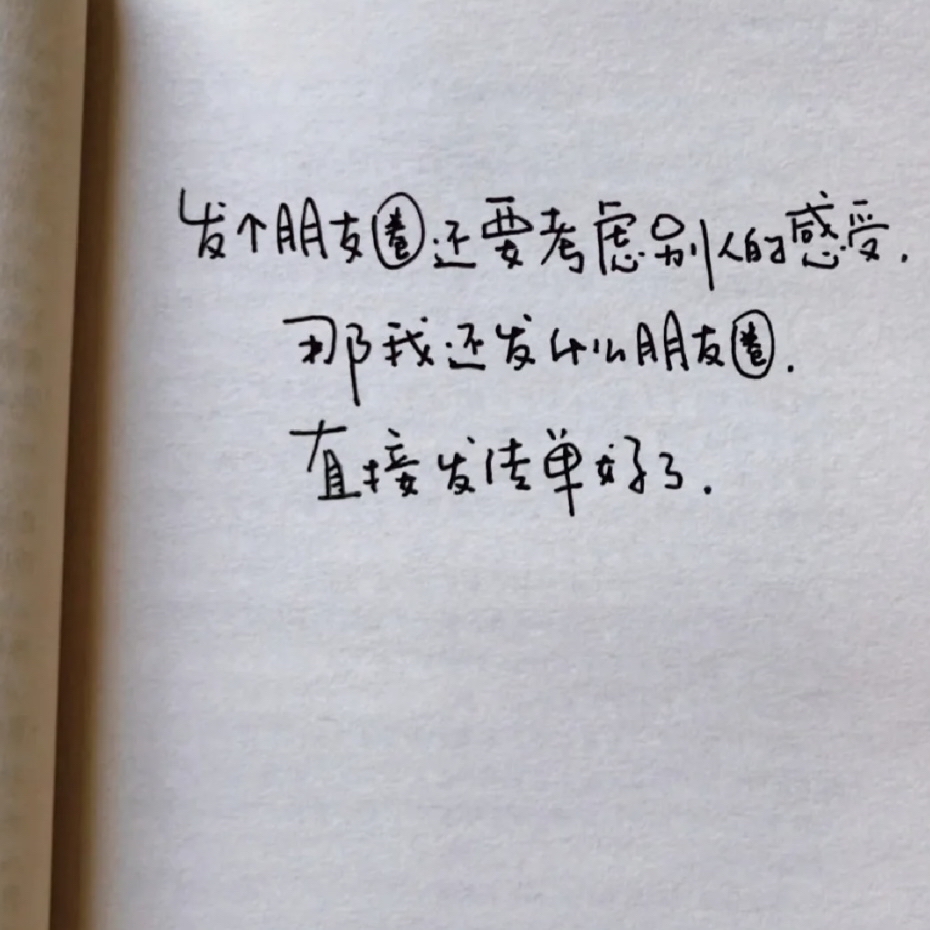 发个朋友圈还要考虑别人的感受.
那我还发什么朋友圈.
直接发传单好了.